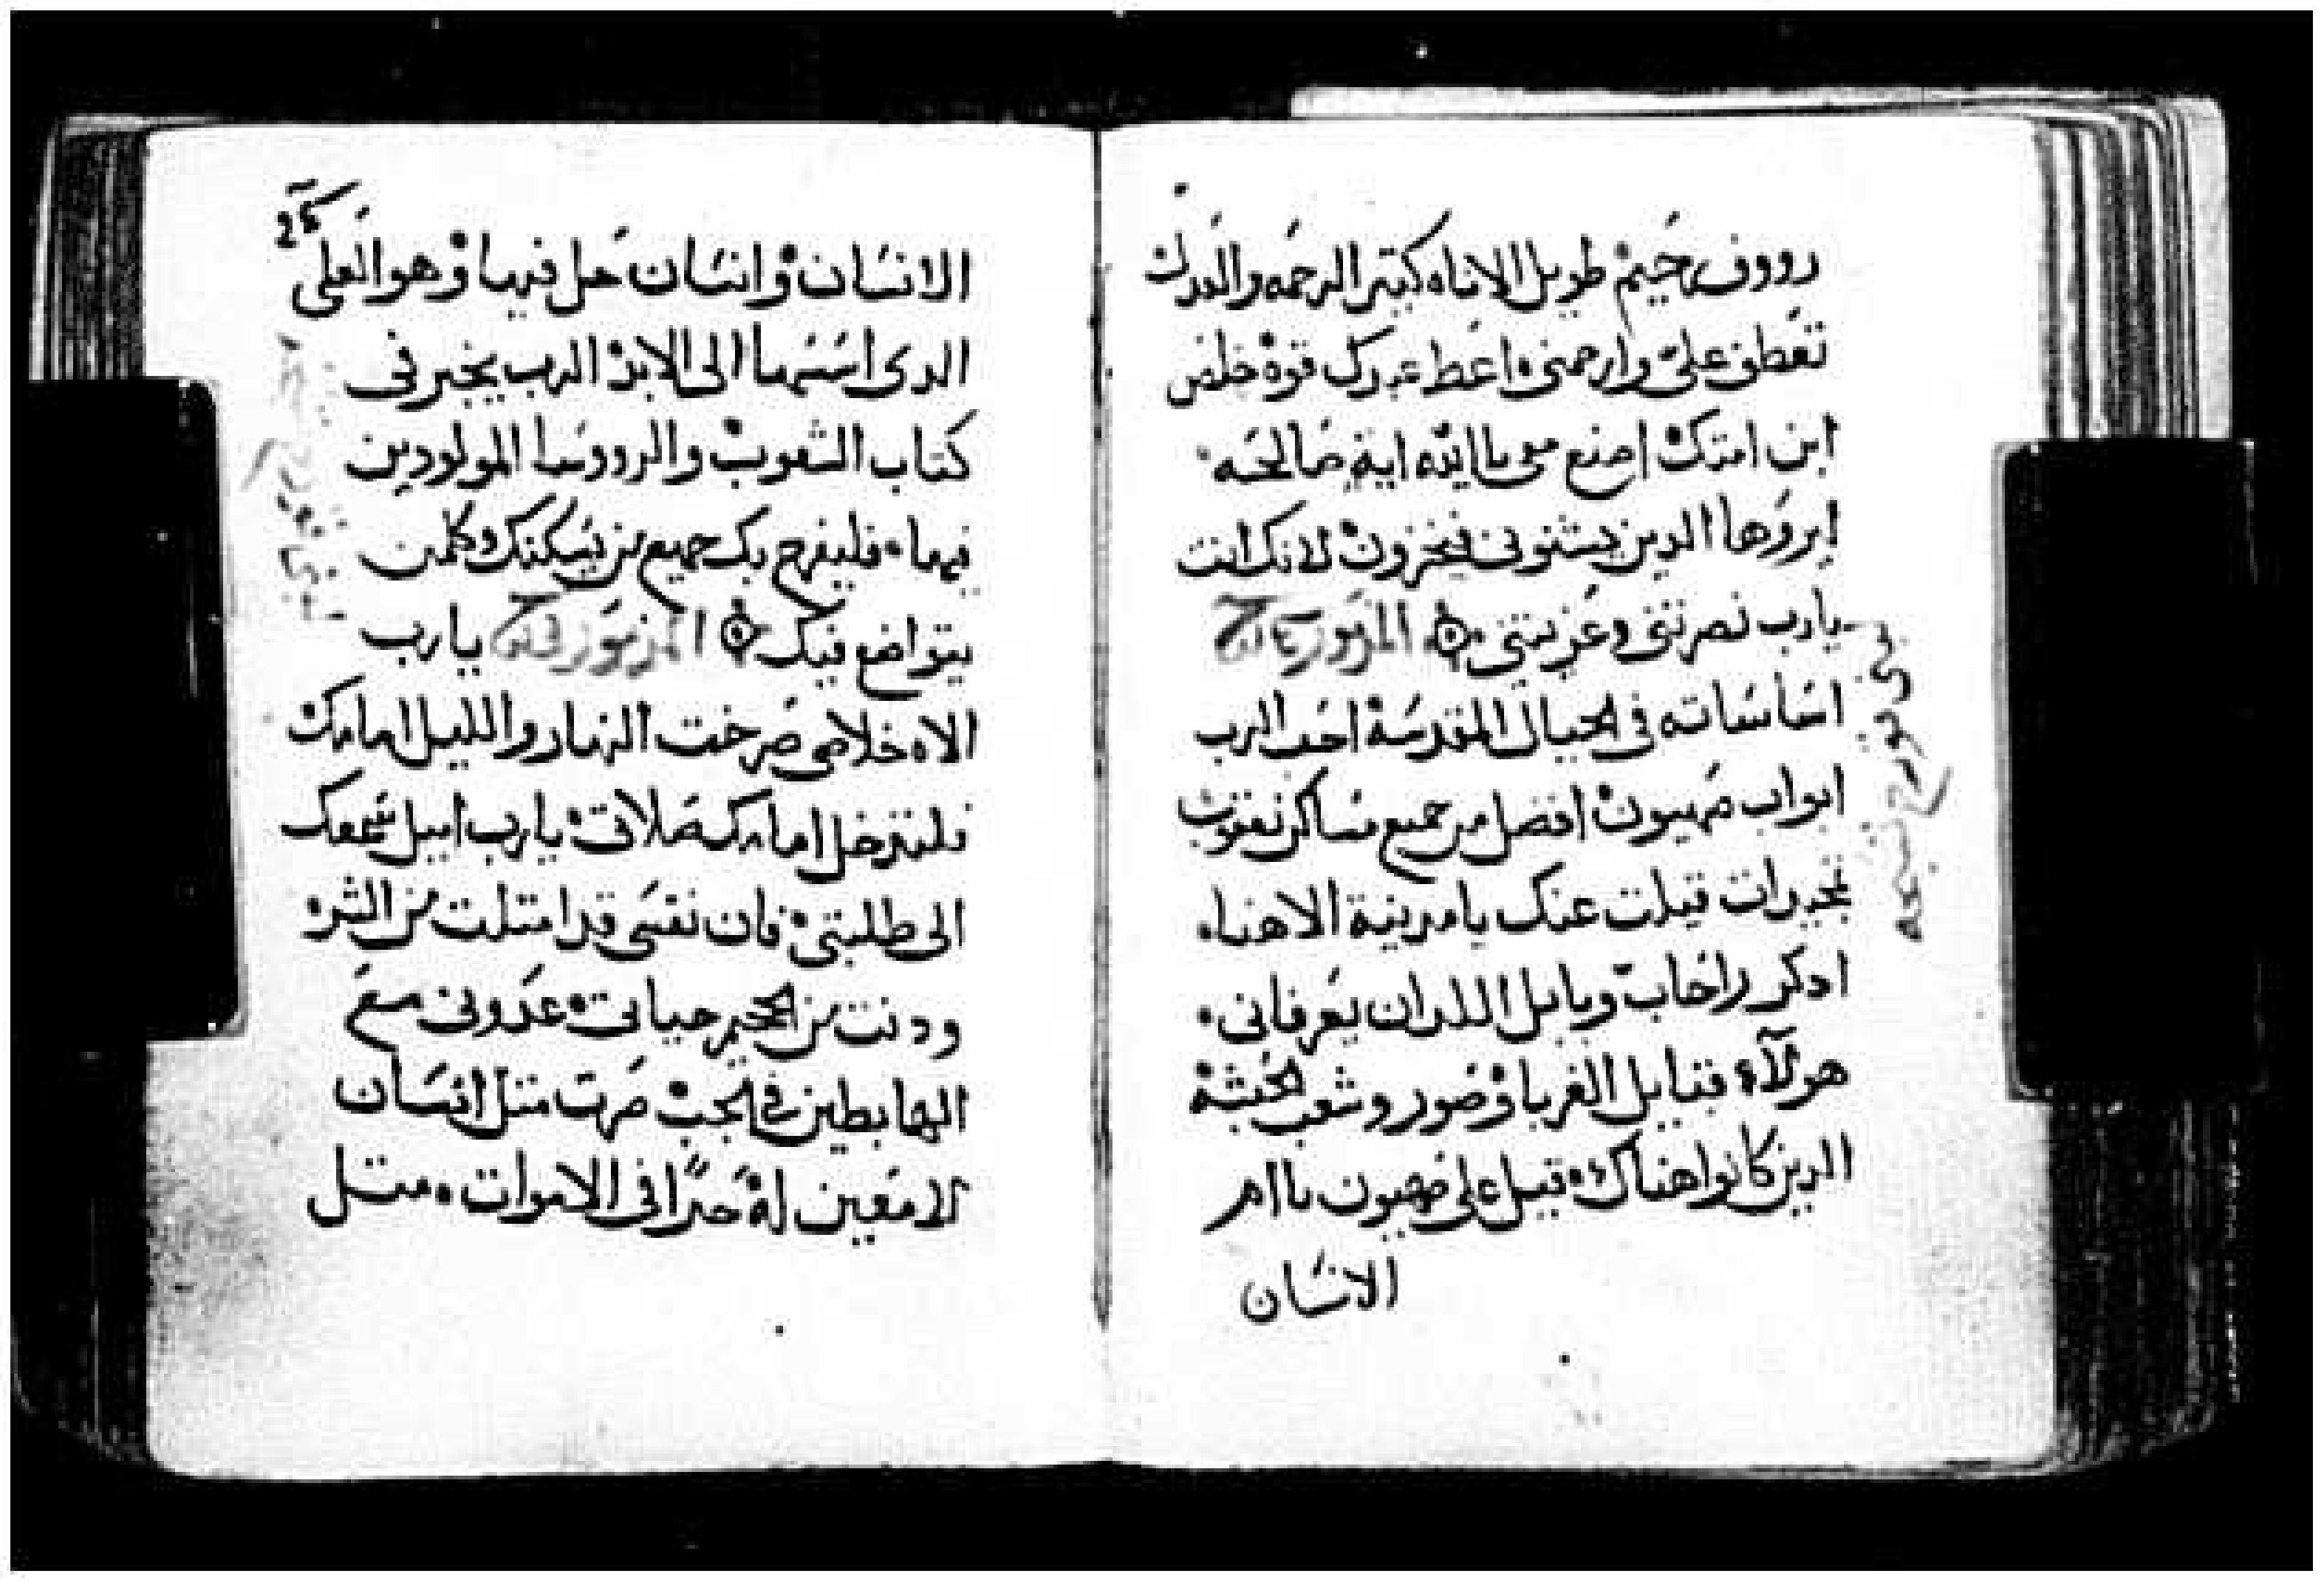 رووف رحيم طويل الاناه كتير الرحمه والعدل
تعطف علىّ وارحمنى واعط عبدك قوة خلص
ابن امتك اصنع معى يا الله اية صالحه
ليروها الدين يشنونى فيخزون لانك انت
يارب نصرتنى وعزيتنى المزمور
اساساته فى الجبال المقدسة احب الرب
ابواب صهيون افضل من جميع مساكن يعقوب
تجيرات قيلت عنك يا مدينة الاهنا
ادكر راحاب وبابل اللدان يعرفانى
هولآء قبايل الغربا وصور وشعب الحبشة
الدين كانوا هناك قبيل على صهيون يا ام
الانسان
الانسان وانسان حل فيها وهو العلى
الدى اسسها الى الابد الرب يخبر فى
كتاب الشعوب والرووسا المولودين
فيها فليفرح بك جميع من يسكنك وكلمن
يتواضع فيك المزمور يا رب
الاه خلاصى صرخت النهار والليل امامك
فلتدخل امامك صلاتى يارب اميل سمعك
الى طلبتى فان نفسى قد امتلت من الشر
ودنت من الجحيم حياتى عدونى مع
الهابطين فى الجب صرت متل انسان
لا معين له حرًا فى الاموات متل